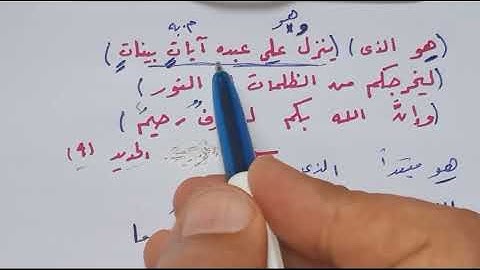 هو م.به
(هو الذى) (ينزل على عبده آيات بينات)
(ليخرجكم من الظلمات النور)
(وإنَّ الله بكم رحيم)
الحديد (٩)
هو مبتدأ الذى